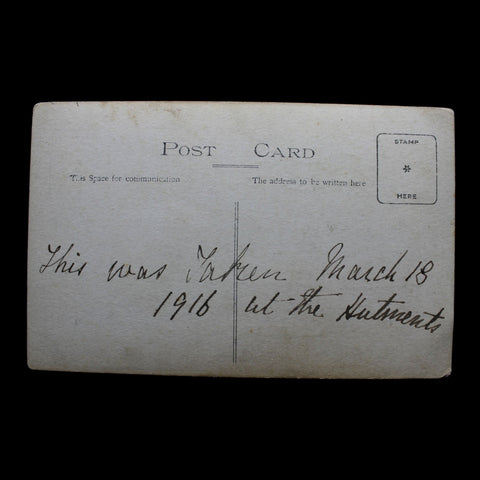 POST CARD
STAMP
HERE
This Space for communication
The address to be written here
This was Taken March 18
1916 at the Hutments